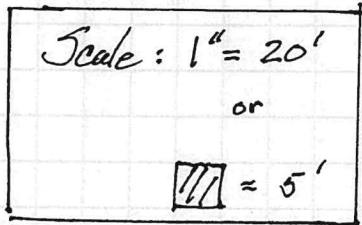 Scale: 1" = 20'
or
= 5'